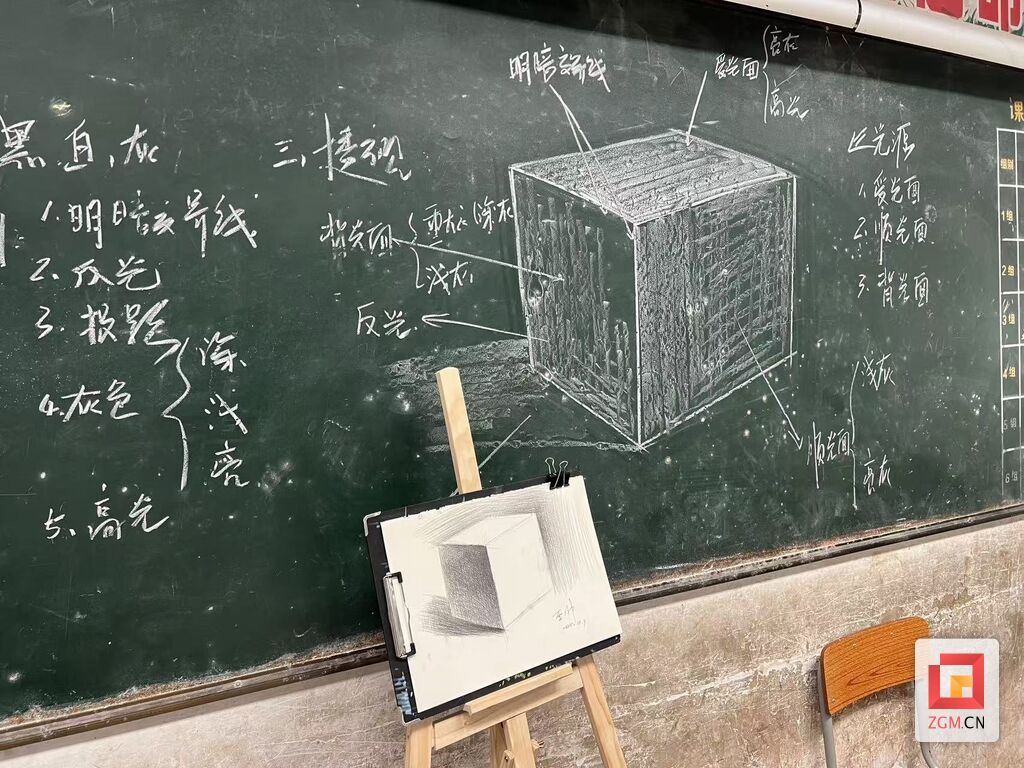 黑 白、灰
1.明暗交界线
2.反光
3.投影
4.灰色
深
浅
亮
5.高光
三、透视
明暗交界线
受光面
亮灰
高光
背光面
重灰(深灰
浅灰
反光
近光源
1.受光面
2.顺光面
3.背光面
顺光面
浅灰
亮灰
1课
组别
1组
2组
3组
4组
5组
6组
ZGM.CN